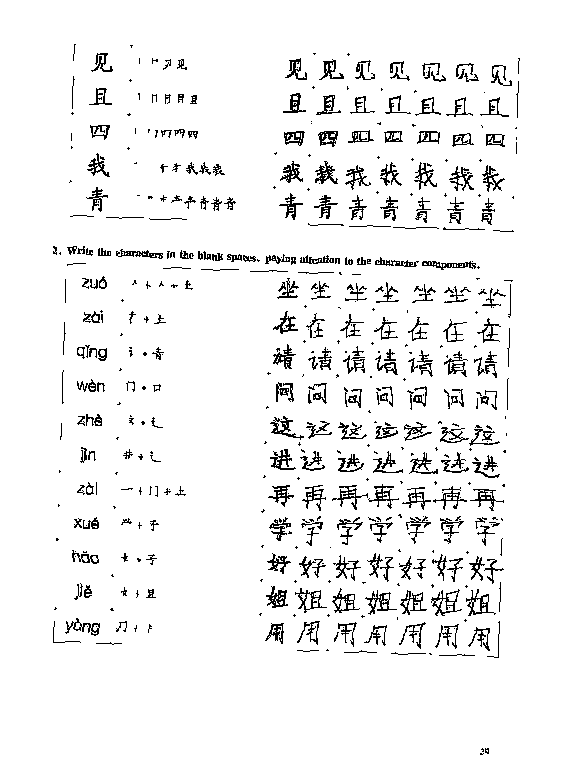 见 丨 𠃌 见 见 见 见 见 见 见 见
且 丨 冂 月 且 且 且 且 且 且 且 且
四 四 四 四 四 四 四 四
我 我 我 我 我 我 我 我 我 我 我
青 青 青 青 青 青 青 青 青
2. Write the characters in the blank spaces, paying attention to the character components.
zuò 人 + 人 + 土 坐 坐 坐 坐 坐 坐 坐
zài + 土 在 在 在 在 在 在 在
qǐng 讠 + 青 请 请 请 请 请 请 请
wèn 门 + 口 问 问 问 问 问 问 问
zhè 文 + 辶 这 这 这 这 这 这 这
jìn 井 + 辶 进 进 进 进 进 进 进
zài 一 + 冂 + 土 再 再 再 再 再 再 再
xué + 子 学 学 学 学 学 学 学
hǎo 女 + 子 好 好 好 好 好 好 好
jiě 女 + 且 姐 姐 姐 姐 姐 姐 姐
yòng 用 用 用 用 用 用 用